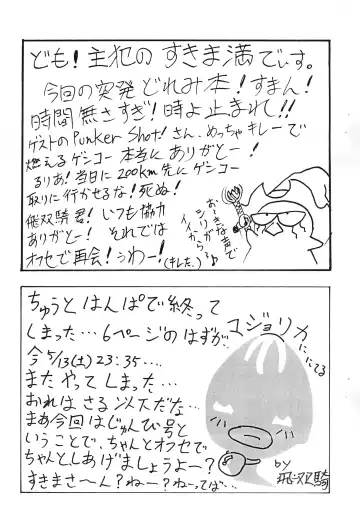 ども！主犯のすきま満でぃす。
今回の突発どれみ本！すまん！
時間無さすぎ！時よ止まれ！！
ゲストのPunker Shot！さん、めっちゃキレーで
燃えるゲンコー本当にありがとー！
るりあ！当日に200km先にゲンコー
取りに行かせるな！死ぬ！
飛双騎君！いつも協力
ありがとー！それでは
オフセで再会！うわー！
(キレた。)
おーきな声で
シリが
イイから♪
ちゅうとはんぱで終って
しまった…6ページのはずが、
今5/13(土)23:35‥‥
またやってしまった…
おれはさる以下だな…
まあ今回はじゅんび号と
いうことで、ちゃんとオフセで
ちゃんとしあげましょうよー？
すきまさ〜ん？ねー？ねーってば…
マジョリカ
ににてる
by
飛双騎